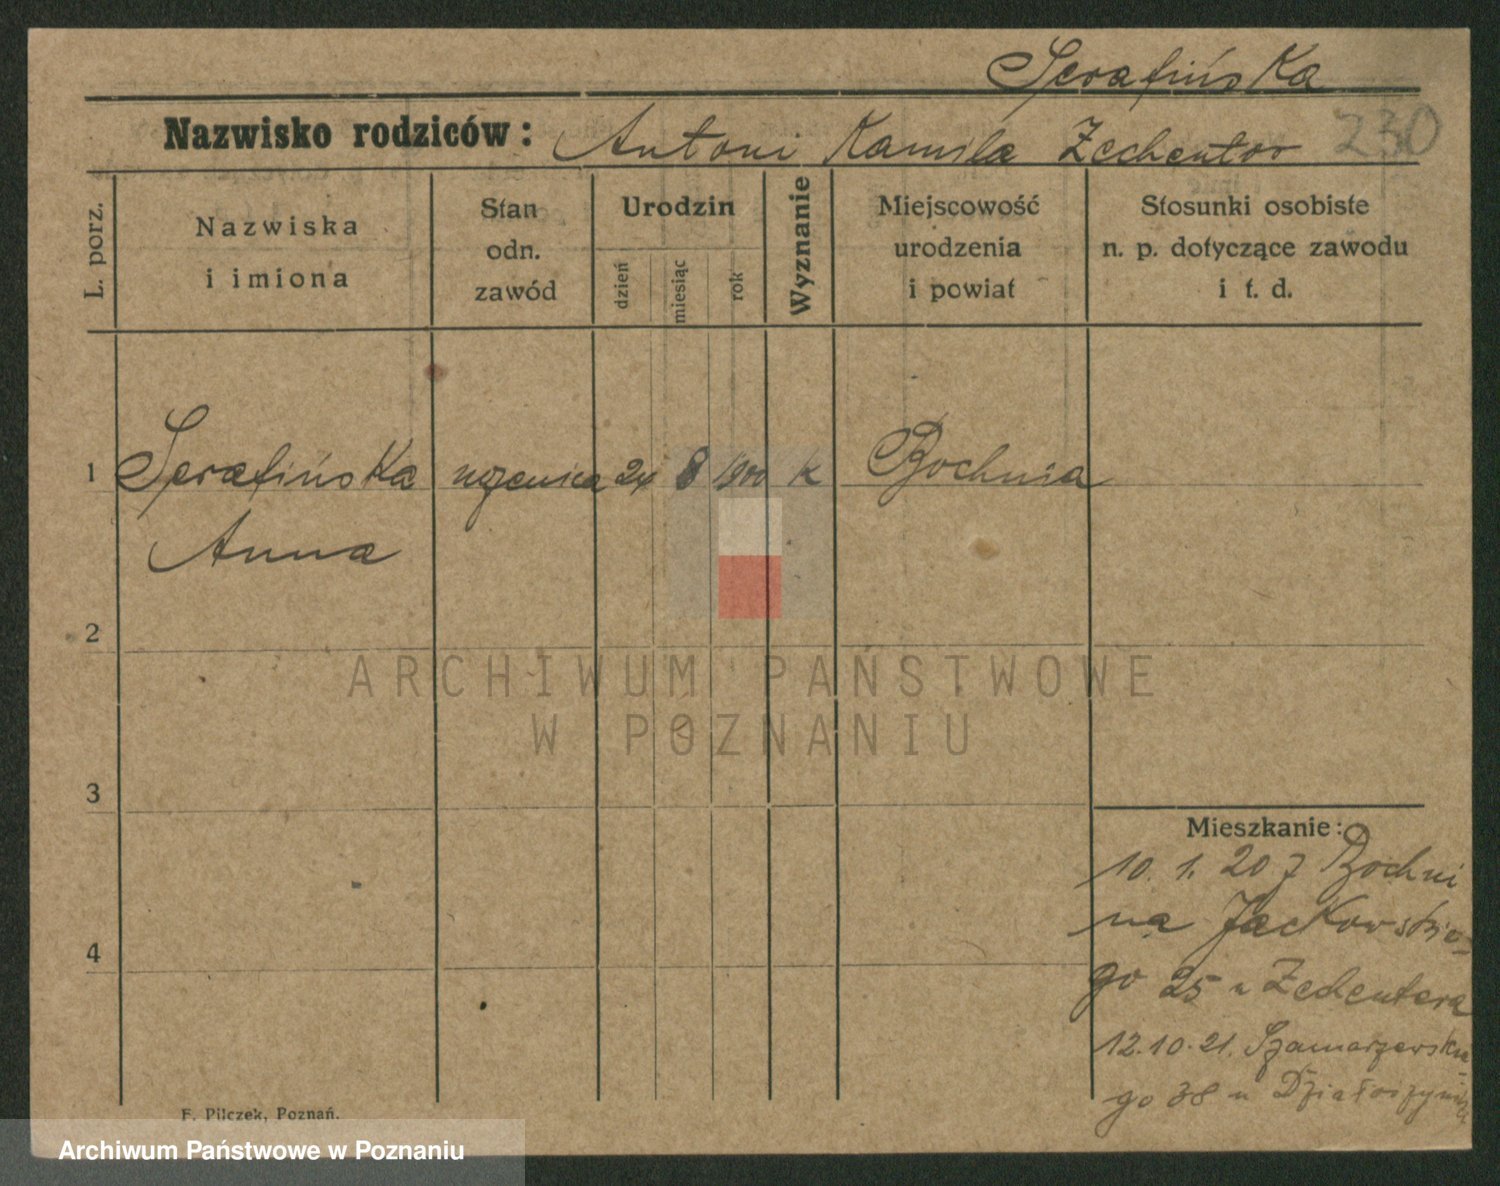 Serafińska
Nazwisko rodziców: Antoni Kamila Zechentor 230
L. porz.
Nazwiska
i imiona
Stan
odn.
zawód
Urodzin
dzień
miesiąc
rok
Wyznanie
Miejscowość
urodzenia
i powiat
Stosunki osobiste
n. p. dotyczące zawodu
i t. d.
1 Serafińska uczenica 24 8 1900 k Bochnia
Anna
2
ARCHIWUM PAŃSTWOWE
W POZNANIU
3
Mieszkanie:
10. 1. 20 z Bochni
na Jackowskie-
go 25 u Zechentera
4
12.10.21. Szamarzewskie-
go 38 u
F. Pilczek, Poznań.
Archiwum Państwowe w Poznaniu